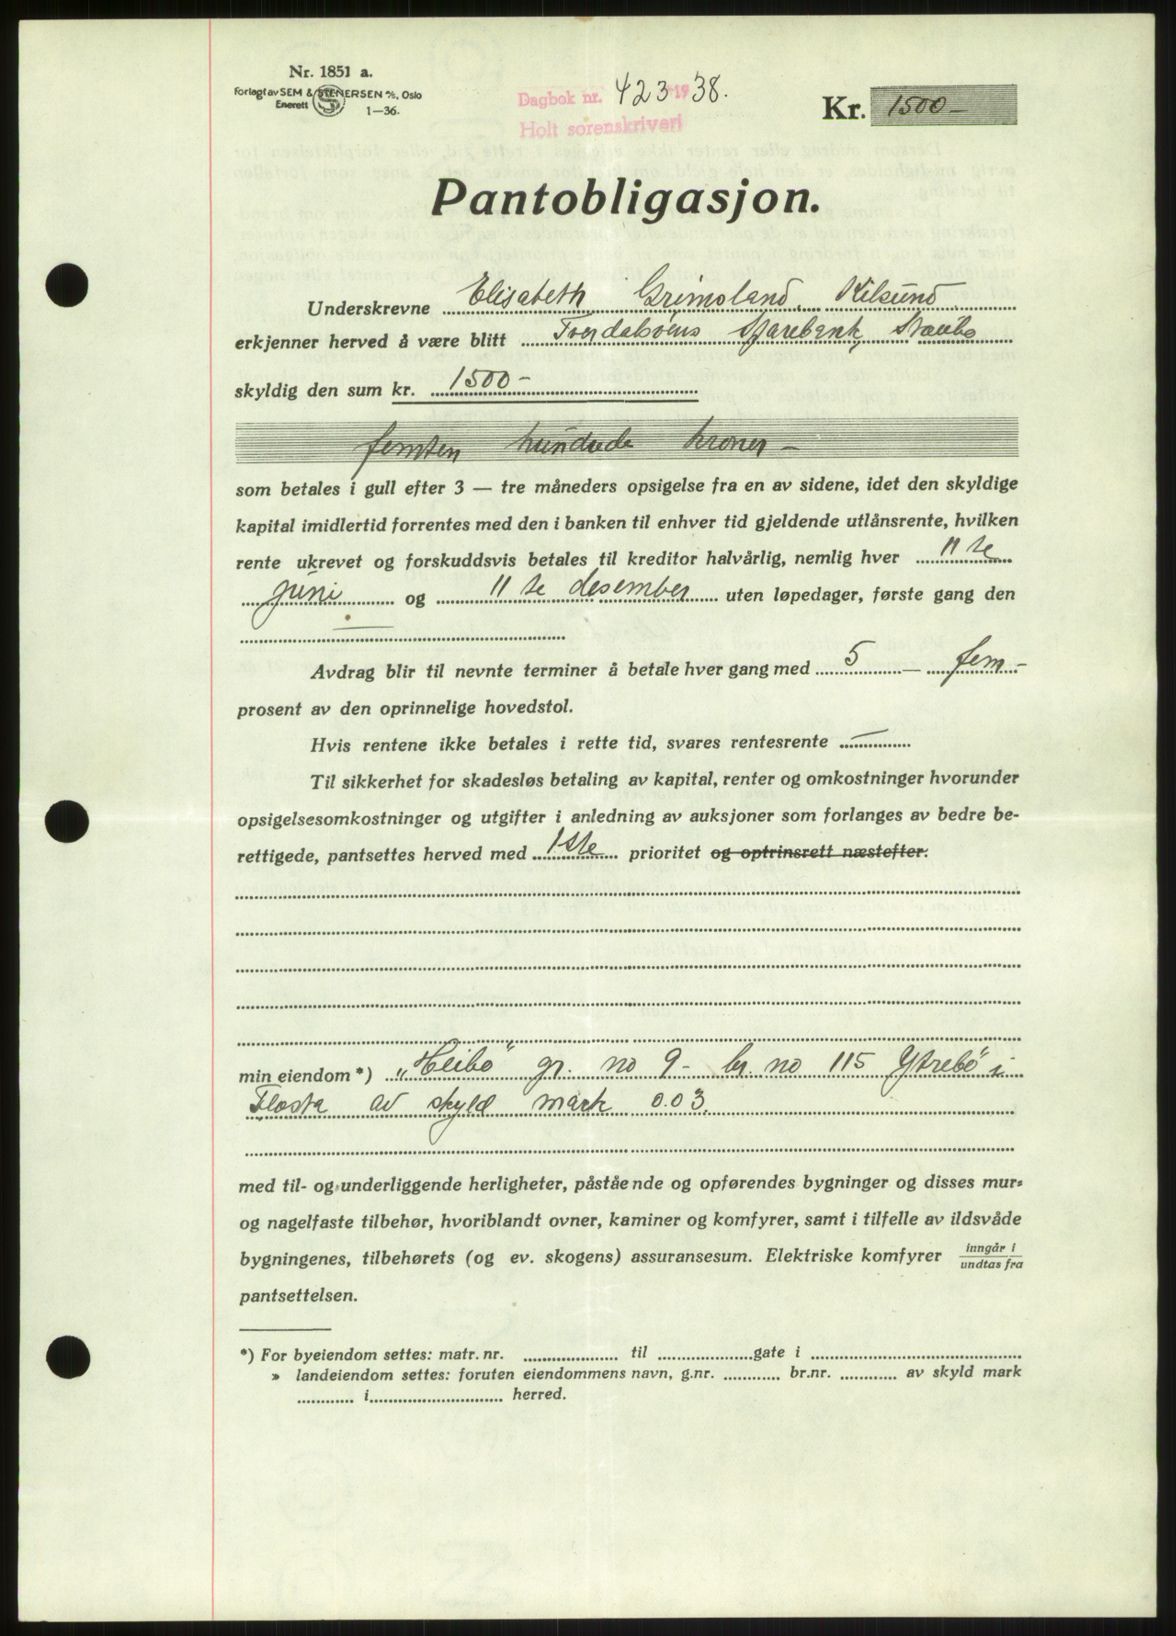 Nr. 1851 a.
Forlagt av SEM & STENERSEN A/S, Oslo
Enerett
1—36.
Dagbok nr. 423 1938.
Holt sorenskriveri
Kr. 1500 —
Pantobligasjon.
Underskrevne Elisabeth Grimsland, Kilsund,
erkjenner herved å være blitt Sparebank, Staubø
skyldig den sum kr. 1500 —
femten hundrede kroner —
som betales i gull efter 3 — tre måneders opsigelse fra en av sidene, idet den skyldige
kapital imidlertid forrentes med den i banken til enhver tid gjeldende utlånsrente, hvilken
rente ukrevet og forskuddsvis betales til kreditor halvårlig, nemlig hver 11 te
juni og 11 te desember uten løpedager, første gang den
Avdrag blir til nevnte terminer å betale hver gang med 5 — fem —
prosent av den oprinnelige hovedstol.
Hvis rentene ikke betales i rette tid, svares rentesrente —
Til sikkerhet for skadesløs betaling av kapital, renter og omkostninger hvorunder
opsigelsesomkostninger og utgifter i anledning av auksjoner som forlanges av bedre be-
rettigede, pantsettes herved med 1ste prioritet og optrinsrett næstefter:
min eiendom *) „Heibø" gr. no 9 - br. no 115 Ytrebø" i
Flosta av skyld mark 0.03.
med til- og underliggende herligheter, påstående og opførendes bygninger og disses mur-
og nagelfaste tilbehør, hvoriblandt ovner, kaminer og komfyrer, samt i tilfelle av ildsvåde
bygningenes, tilbehørets (og ev. skogens) assuransesum. Elektriske komfyrer inngår i
undtas fra
pantsettelsen.
*) For byeiendom settes: matr. nr. til gate i
» landeiendom settes: foruten eiendommens navn, g.nr. br.nr. av skyld mark
i herred.